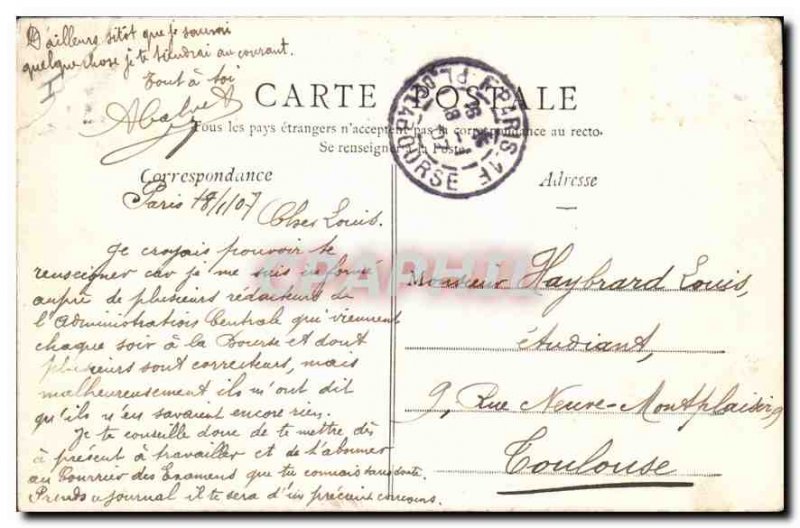 D'ailleurs sitôt que je saurai
quelque chose je te tiendrai au courant.
Tout à toi
CARTE POSTALE
Tous les pays étrangers n'acceptent pas la correspondance au recto.
Se renseigner à la Poste.
Correspondance
Adresse
PARIS PL. DE LA BOURSE
Paris 18/1/07
Cher Louis.
Je croyais pouvoir te
renseigner car je me suis informé
auprè de plusieurs rédacteurs de
l'Administration Centrale qui viennent
chaque soir à la Bourse et dont
plusieurs sont correcteurs, mais
malheureusement ils m'ont dit
qu'ils n'en savaient encore rien.
Je te conseille donc de te mettre dès
à présent à travailler et de t'abonner
au Courrier des Examens que tu connais sans doute.
Prends ce journal il te sera d'un précieux concours.
Monsieur Haybrard Louis,
étudiant,
9, Rue Neuve-Montplaisir, 9
Toulouse
CPAPHIL